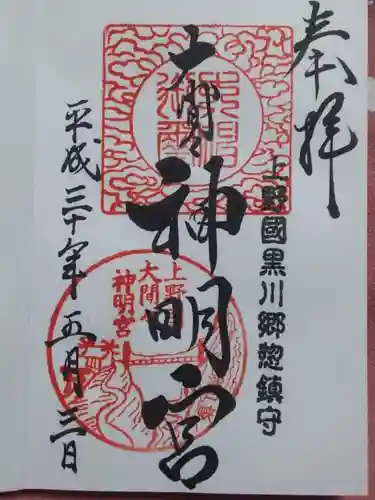 奉拝
上野國黒川郷惣鎮守
大間々神明宮
上野
大間
神明宮
平成三十年五月三日